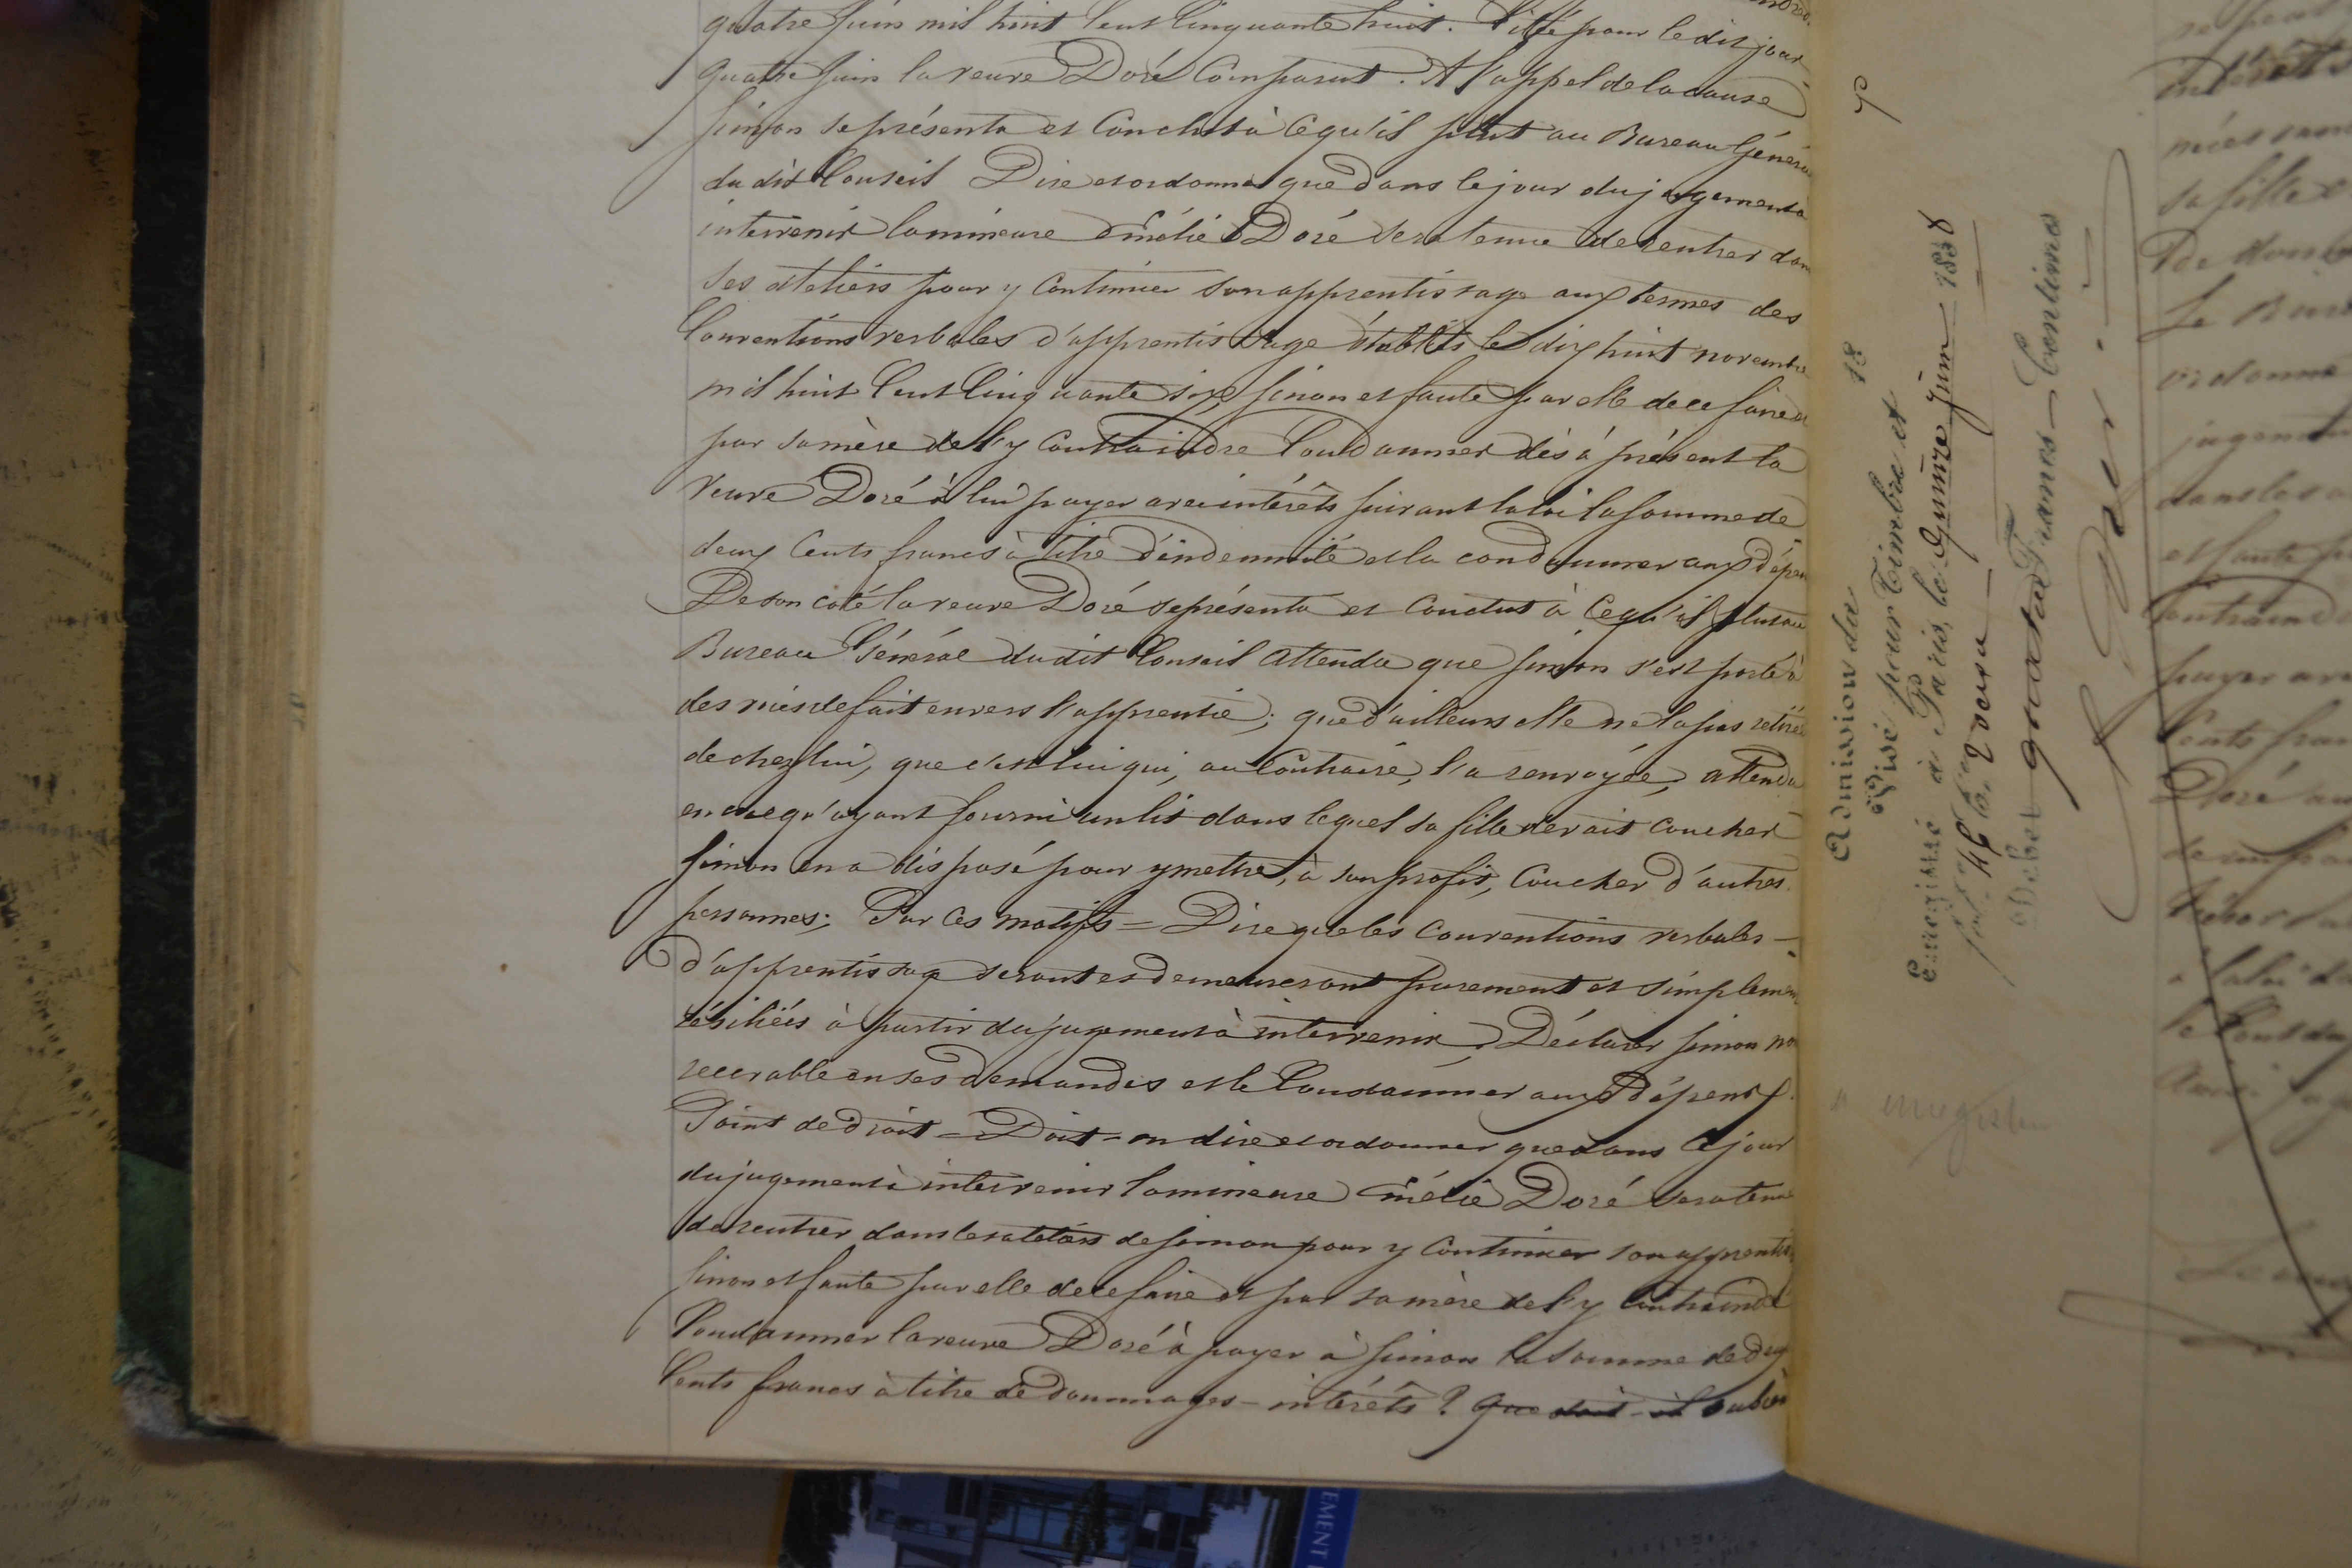 quatre juin mil huit cent cinquante huit. Cité pour ledit jour
quatre juin la veuve Doré Comparut. A l'appel de la cause
Simon se présenta et Conclut à ce qu'il plut au Bureau Général
du dit Conseil Dire et ordonner que dans le jour du jugement à
intervenir la mineure Amélie Doré sera tenue de rentrer dans
ses ateliers pour y Continuer son apprentissage aux termes des
Conventions verbales d'apprentissage établies le dix huit novembre
mil huit Cent Cinquante six, sinon et faute par elle de ce faire et
par sa mère de l'y Contraindre Condamner dès à présent la
Veuve Doré à lui payer avec intérêts suivant la loi la somme de
deux Cents francs à titre d'indemnité et la condamner aux dépens
De son coté la veuve Doré se présenta et Conclut à Ce qu'il plut au
Bureau Général du dit Conseil attendu que Simon s'est porté à
des voies de fait envers l'apprentie; que d'ailleurs elle ne l'a pas retirée
de chez lui, que c'est lui qui, au Contraire, l'a renvoyée, attendu
encore qu'ayant fourni un lit dans lequel sa fille devait coucher
Simon en a disposé pour y mettre, à son profit, Coucher d'autres
personnes; Par Ces motifs = Dire que les Conventions verbales
d'apprentissage seront et demeureront purement et simplement
résiliées à partir du jugement à intervenir, Déclarer Simon non
recevable en ses demandes et le Condamner aux dépens.
Point de droit = Doit-on dire et ordonner que dans le jour
du jugement à intervenir la mineure Amélie Doré sera tenue
de rentrer dans les ateliers de Simon pour y Continuer son apprentis
sinon et faute par elle de ce faire et par sa mère de l'y Contraindre
Condamner la veuve Doré à payer à Simon la somme de deux
Cents francs à titre de dommages-intérêts? Que doit-il
Visé pour Timbre et
Enregistré à Paris, le Quinze juin 1858
Debet quatre Francs Centimes
sa fille
ordonne
jugement
dans les
et faute
payer
Cents fran
Doré